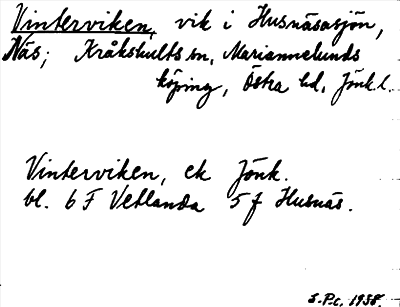 Vinterviken, vik i Husnäsasjön,
Näs; Kråkshults sn, Mariannelunds
köping, Östra hd, Jönk. l.
Vinterviken, ek Jönk.
bl. 6 F Vetlanda 5 f Husnäs.
S.P.c. 1958.